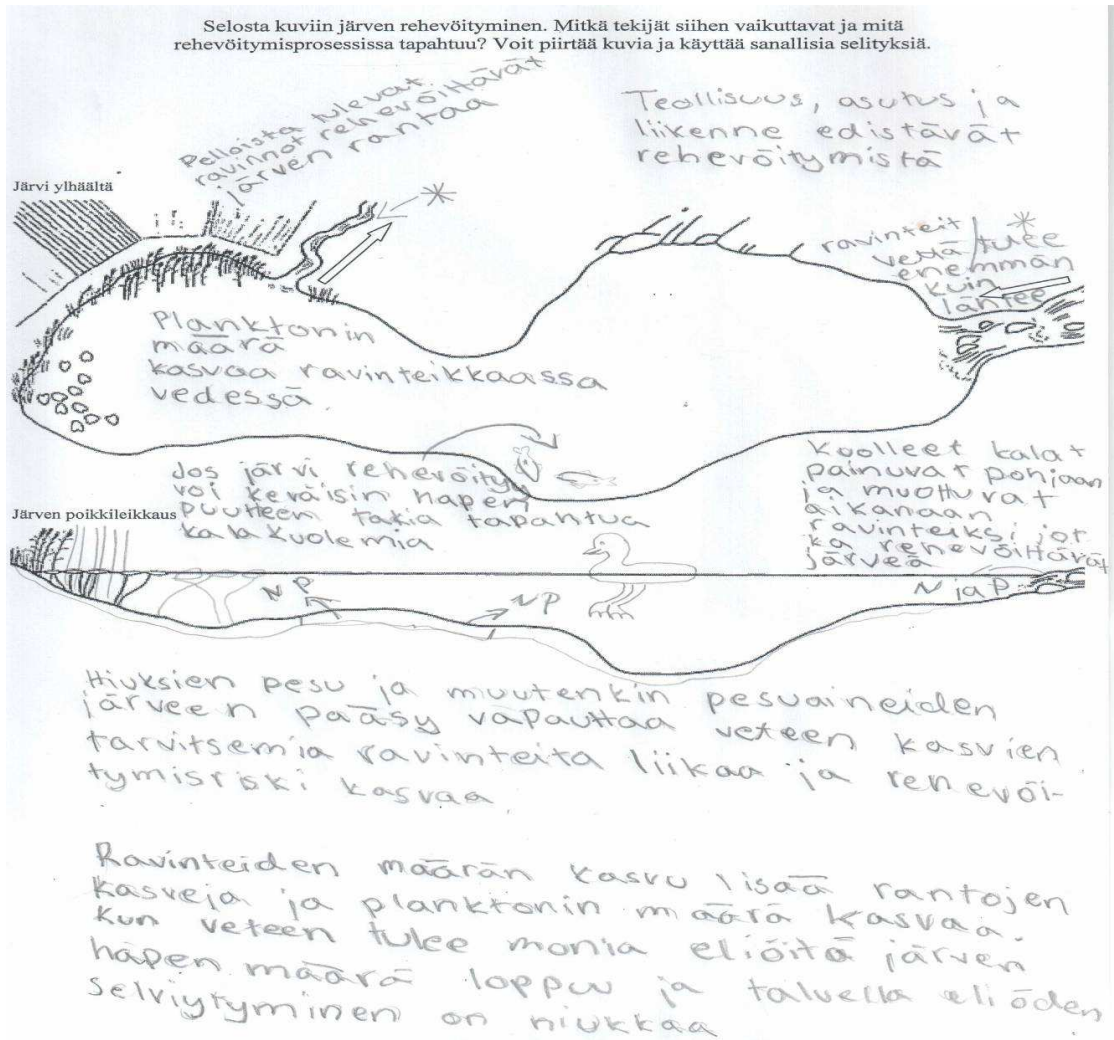 Selosta kuviin järven rehevöityminen. Mitkä tekijät siihen vaikuttavat ja mitä
rehevöitymisprosessissa tapahtuu? Voit piirtää kuvia ja käyttää sanallisia selityksiä.
Pelloista tulevat
ravinnot rehevöittävät
järven rantaa
Teollisuus, asutus ja
liikenne edistävät
rehevöitymistä
Järvi ylhäältä
ravinteit
vettä/tulee
enemmän
kuin
lähtee
Planktonin
määrä
kasvaa ravinteikkaassa
vedessä
Jos järvi rehevöityy
voi keväisin hapen
puutteen takia tapahtua
kalakuolemia
Kuolleet kalat
painuvat pohjaan
ja muottuvat
aikanaan
ravinteiksi jot
ka rehevöittävät
järveä
Järven poikkileikkaus
N P
N P
N ja P
Hiuksien pesu ja muutenkin pesuaineiden
järveen pääsy vapauttaa veteen kasvien
tarvitsemia ravinteita liikaa ja rehevöi-
tymisriski kasvaa
Ravinteiden määrän kasvu lisää rantojen
kasveja ja planktonin määrä kasvaa.
Kun veteen tulee monia eliöitä järven
hapen määrä loppuu ja talvella eliöden
selviytyminen on niukkaa